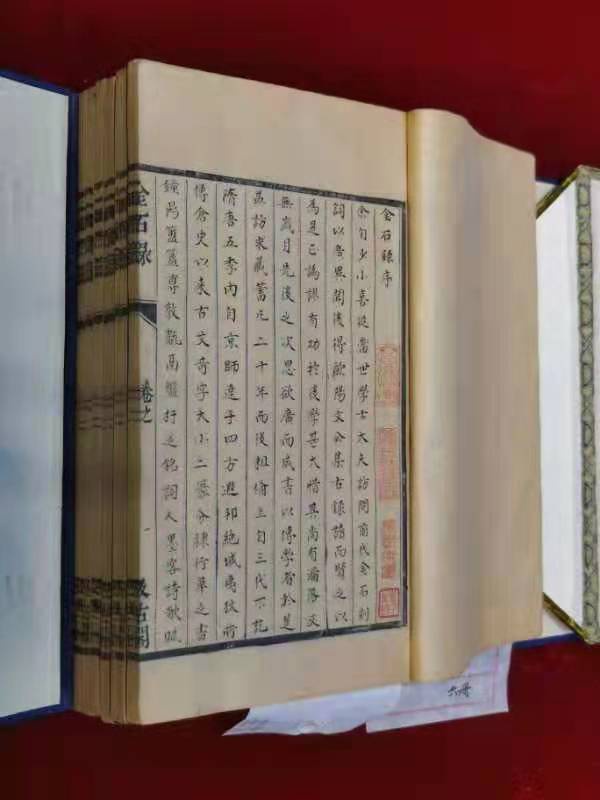 金石錄序
余自少小喜從當世學士大夫訪問前代金石刻
詞以廣異聞後得歐陽文公集古錄讀而賢之以
為是正譌謬有功於後學甚大惜其尚有漏落又
無歲月先後之次思欲廣而成書以傳學者於是
益訪求藏蓄凡二十年而後粗備上自三代下訖
隋唐五季內自京師達于四方遐邦絕域夷狄所
傳倉史以來古文奇字大小二篆分隸行草之書
鐘鼎簠簋尊敦甗鬲盤杅之銘詞人墨客詩歌賦
金石錄
卷之一
汲古閣
六冊